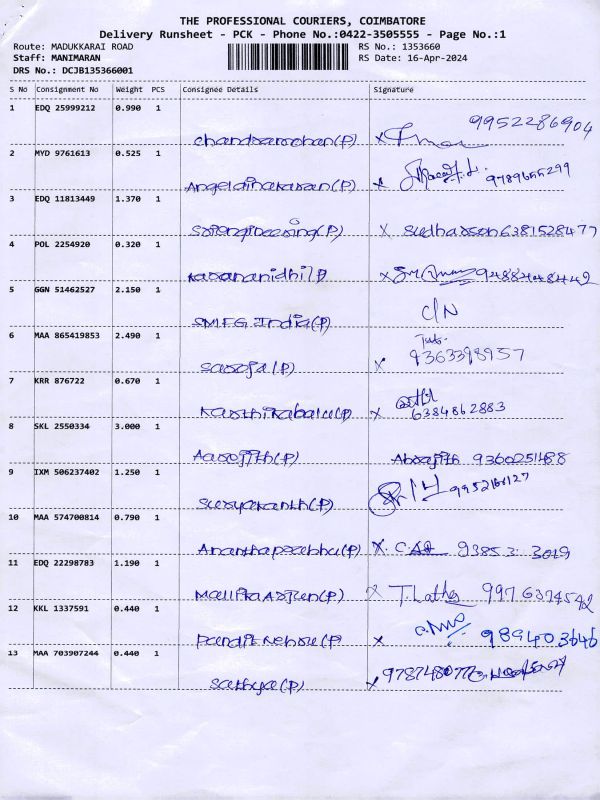 THE PROFESSIONAL COURIERS, COIMBATORE
Delivery Runsheet - PCK - Phone No.:0422-3505555 - Page No.:1
Route: MADUKKARAI ROAD RS No.: 1353660
Staff: MANIMARAN RS Date: 16-Apr-2024
DRS No.: DCJB135366001
S No Consignment No Weight PCS Consignee Details Signature
1 EDQ 25999212 0.990 1
9952286904
Chandramohan(P) x
2 MYD 9761613 0.525 1
Angeldinakaran(P) x 9789655299
3 EDQ 11813449 1.370 1
Sriengineering(P) x Sudharson 6381528477
4 POL 2254920 0.320 1
Karunanidhi(P x
5 GGN 51462527 2.150 1
C/N
SMFG India(P)
6 MAA 865419853 2.490 1
Saroja(P) x 9363398957
7 KRR 876722 0.670 1
Karthikabalu(P x 6384862883
8 SKL 2550334 3.000 1
Aarojith(P) 9360251488
9 IXM 506237402 1.250 1
Suryakanth(P)
10 MAA 574700814 0.790 1
Ananthaprabhu(P) x. 93853 3019
11 EDQ 22298783 1.190 1
Mallika Arjun(P) x T. Latha
12 KKL 1337591 0.440 1
Pandit Nehru(P x 989403646
13 MAA 703907244 0.440 1
Sathya(P) x